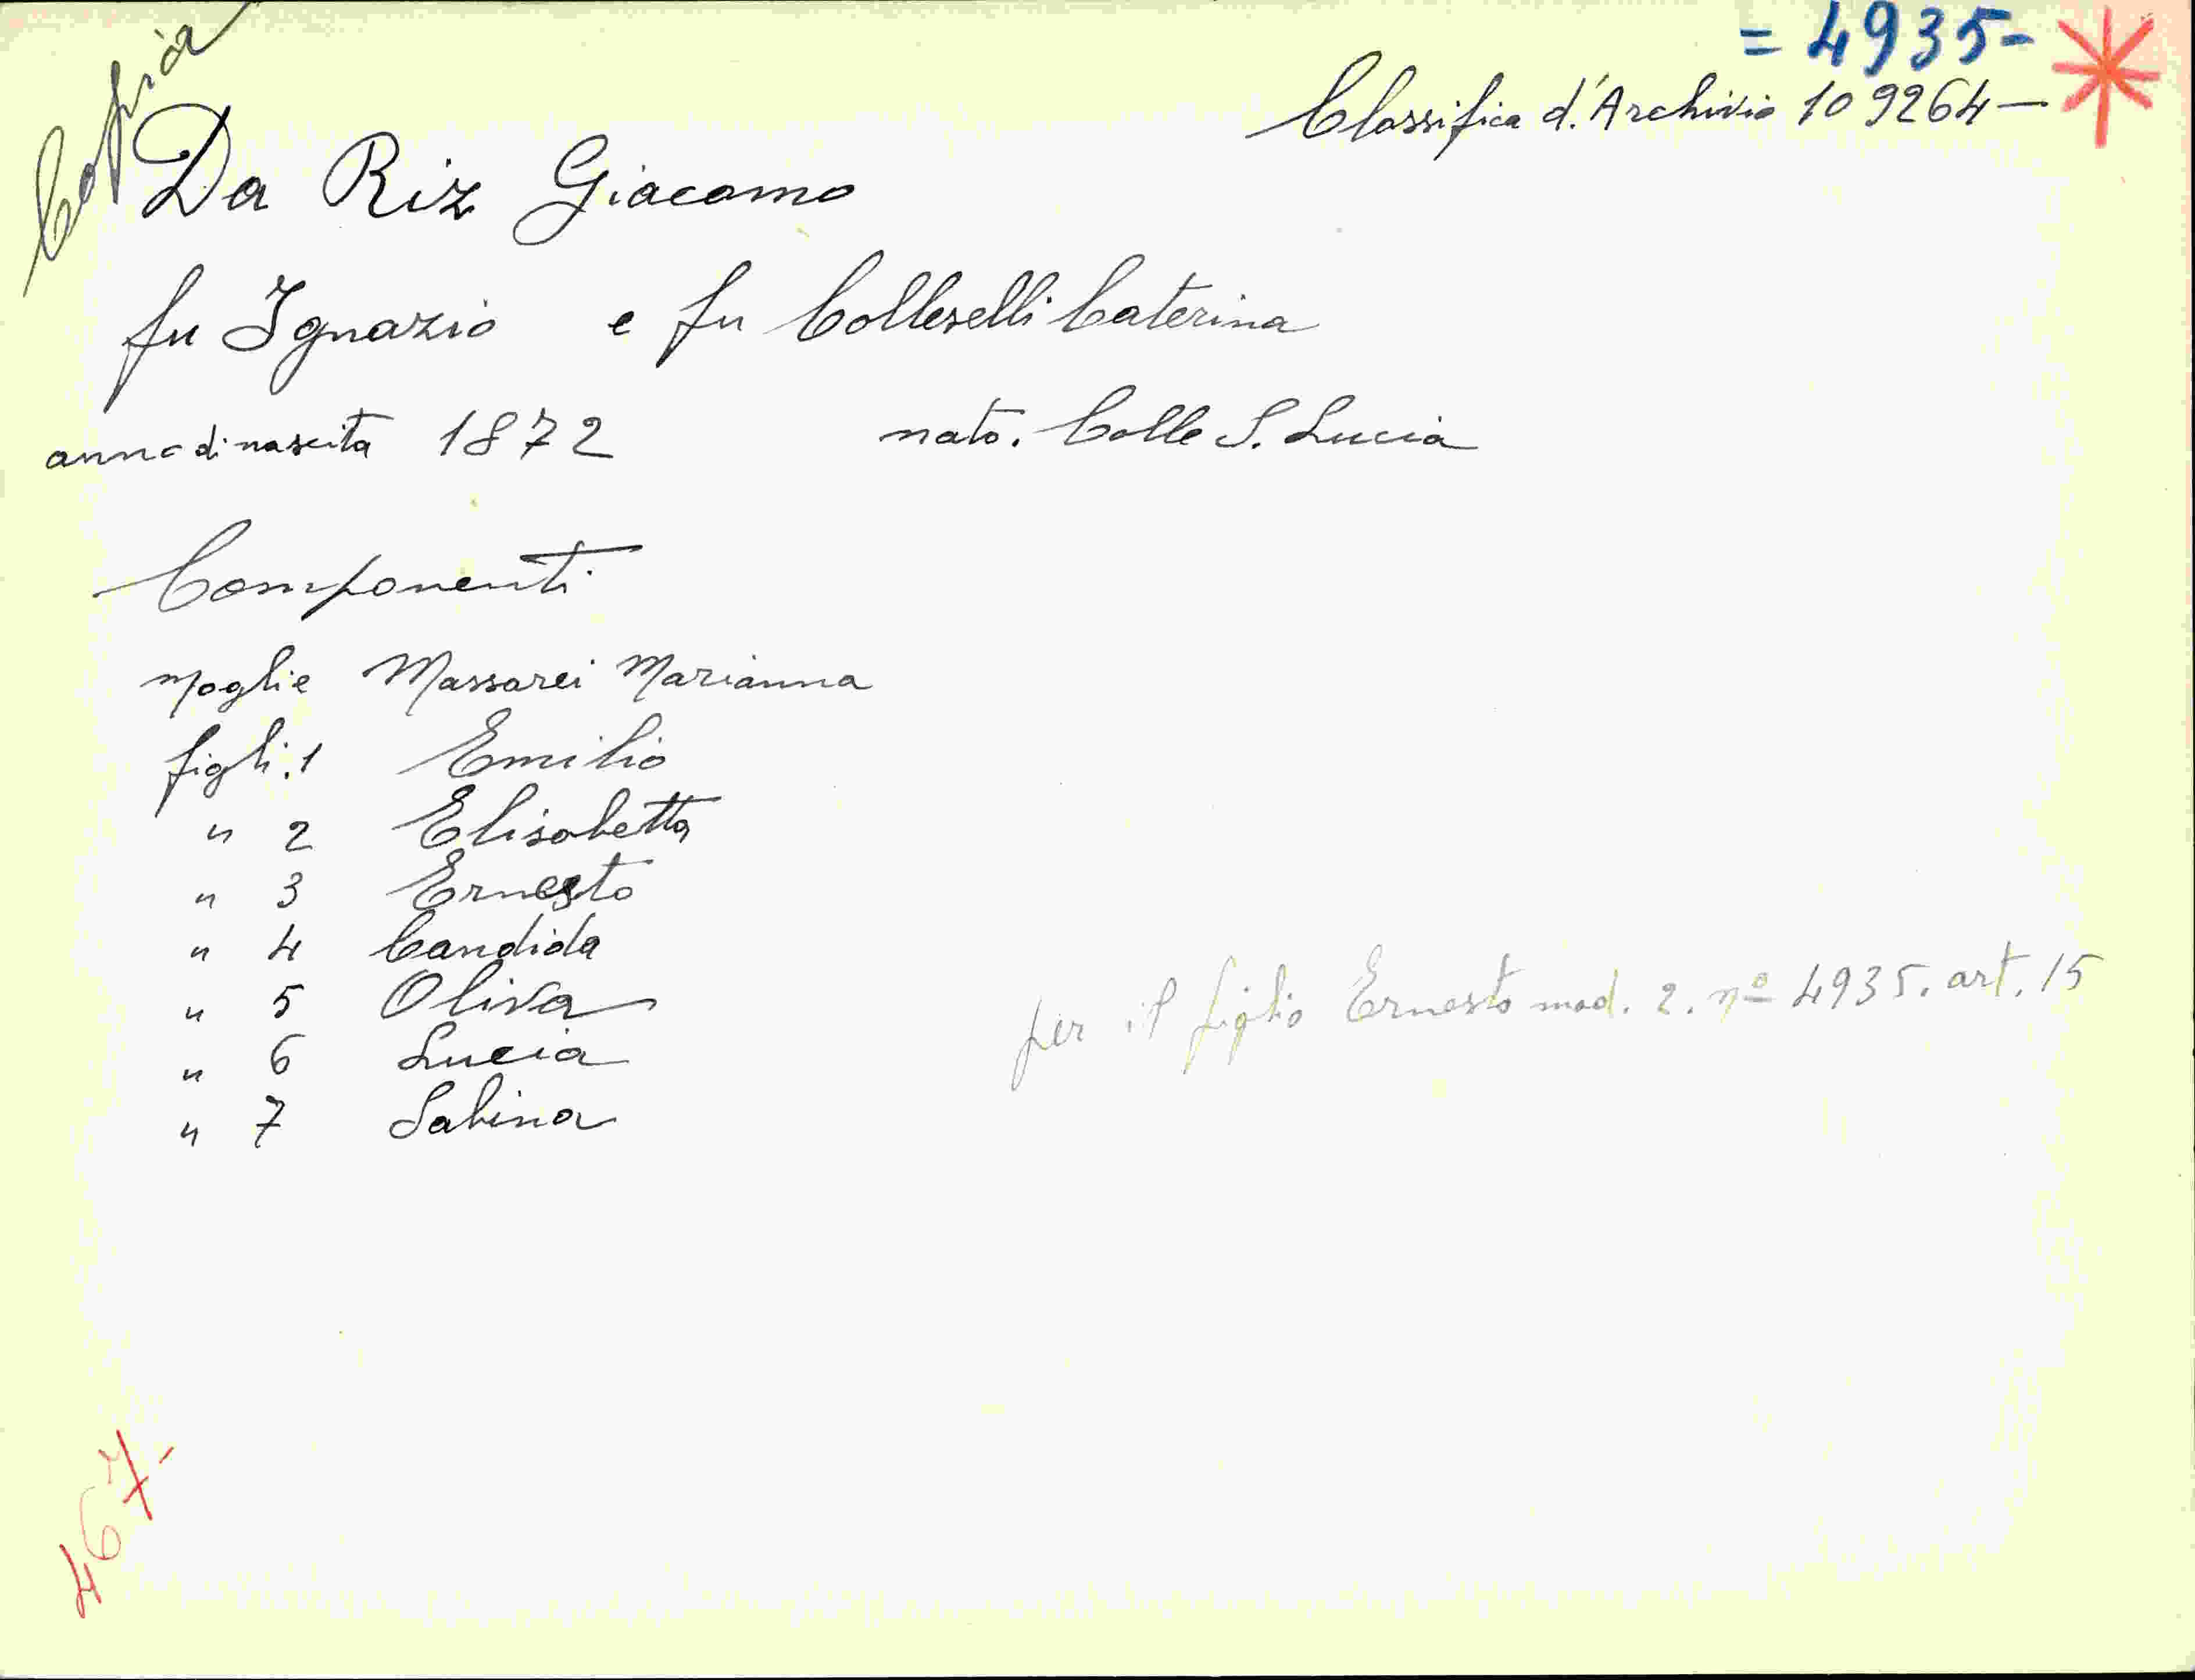 = 4935-
Copia
Classifica d'Archivio 109264—
Da Riz Giacomo
fu Ignazio e fu Colleselli Caterina
anno di nascita 1872 nato. Colle S. Lucia
Componenti
moglie Massarei Marianna
figli. 1 Emilio
" 2 Elisabetta
" 3 Ernesto
" 4 Candida
" 5 Oliva
" 6 Lucia
" 7 Sabina
per il figlio Ernesto mod. 2. nº 4935. art. 15
467-